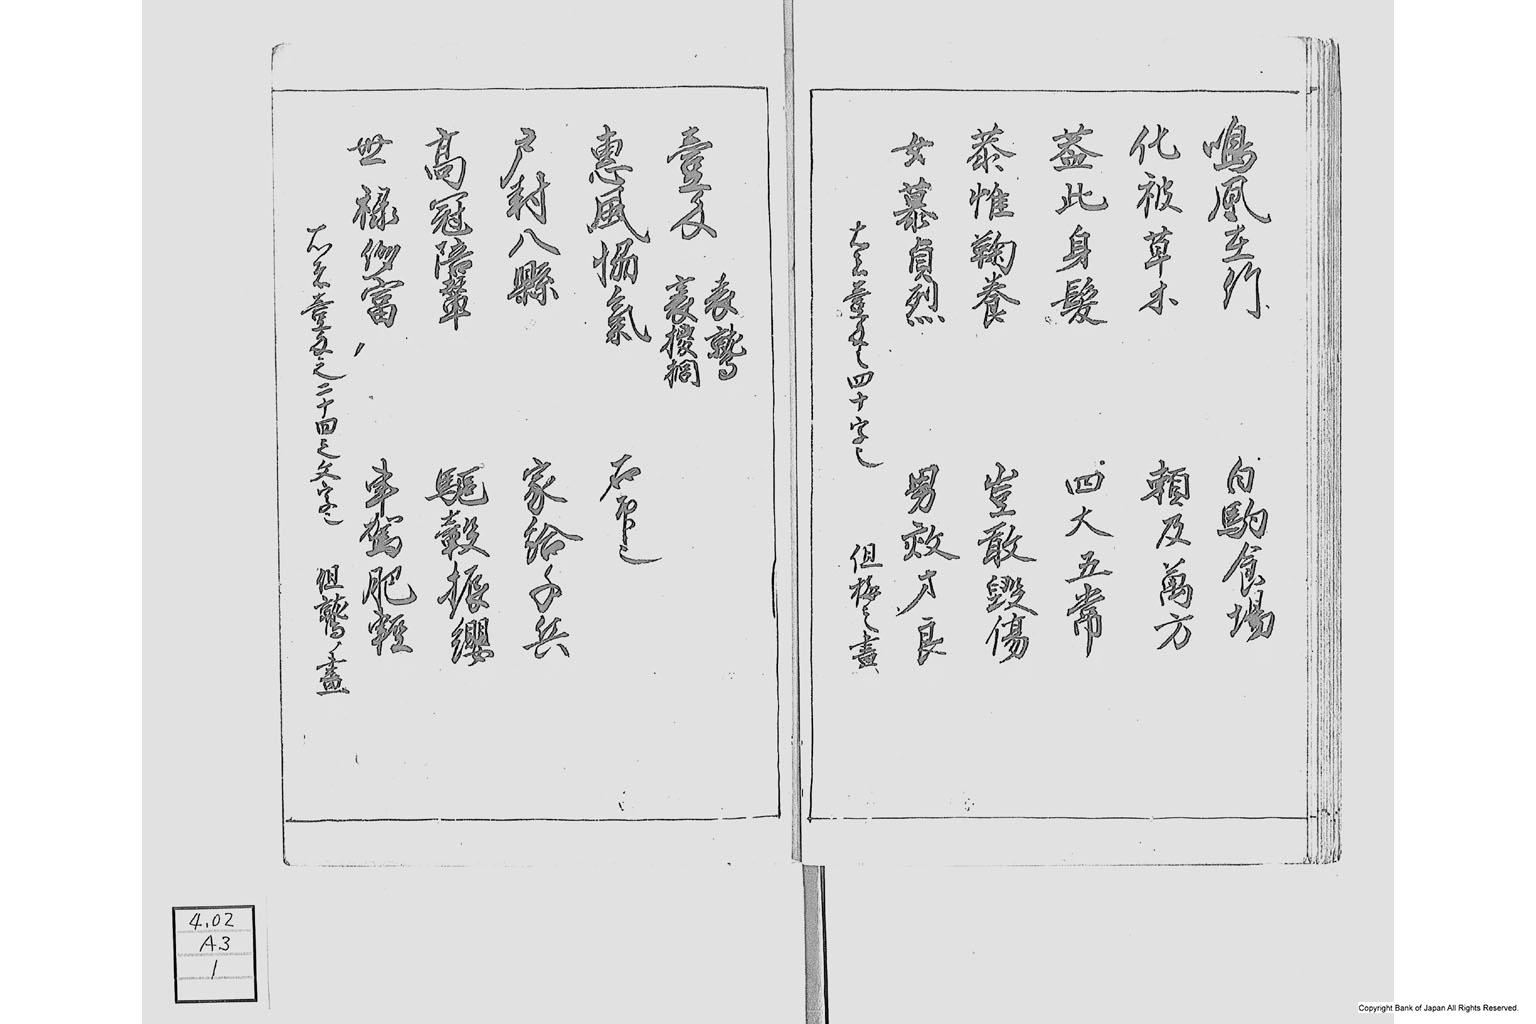 鳴鳳在竹
白駒食場
化被草木
頼及萬方
蓋此身髪
四大五常
恭惟鞠養
豈敢毀傷
女慕貞烈
男效才良
四十字
但 畫
壹文
表鷲
裏
惠風 氣
戸封八縣
家給千兵
高冠陪輦
驅轂振纓
世禄侈富
車駕肥軽
右 壹文之二十四之文字
但鷲ノ畫
4.02
A3
1
Copyright Bank of Japan All Rights Reserved.